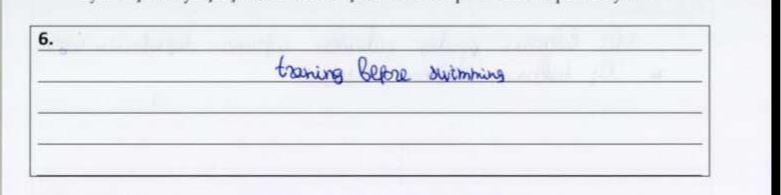 6.
traning before swimming